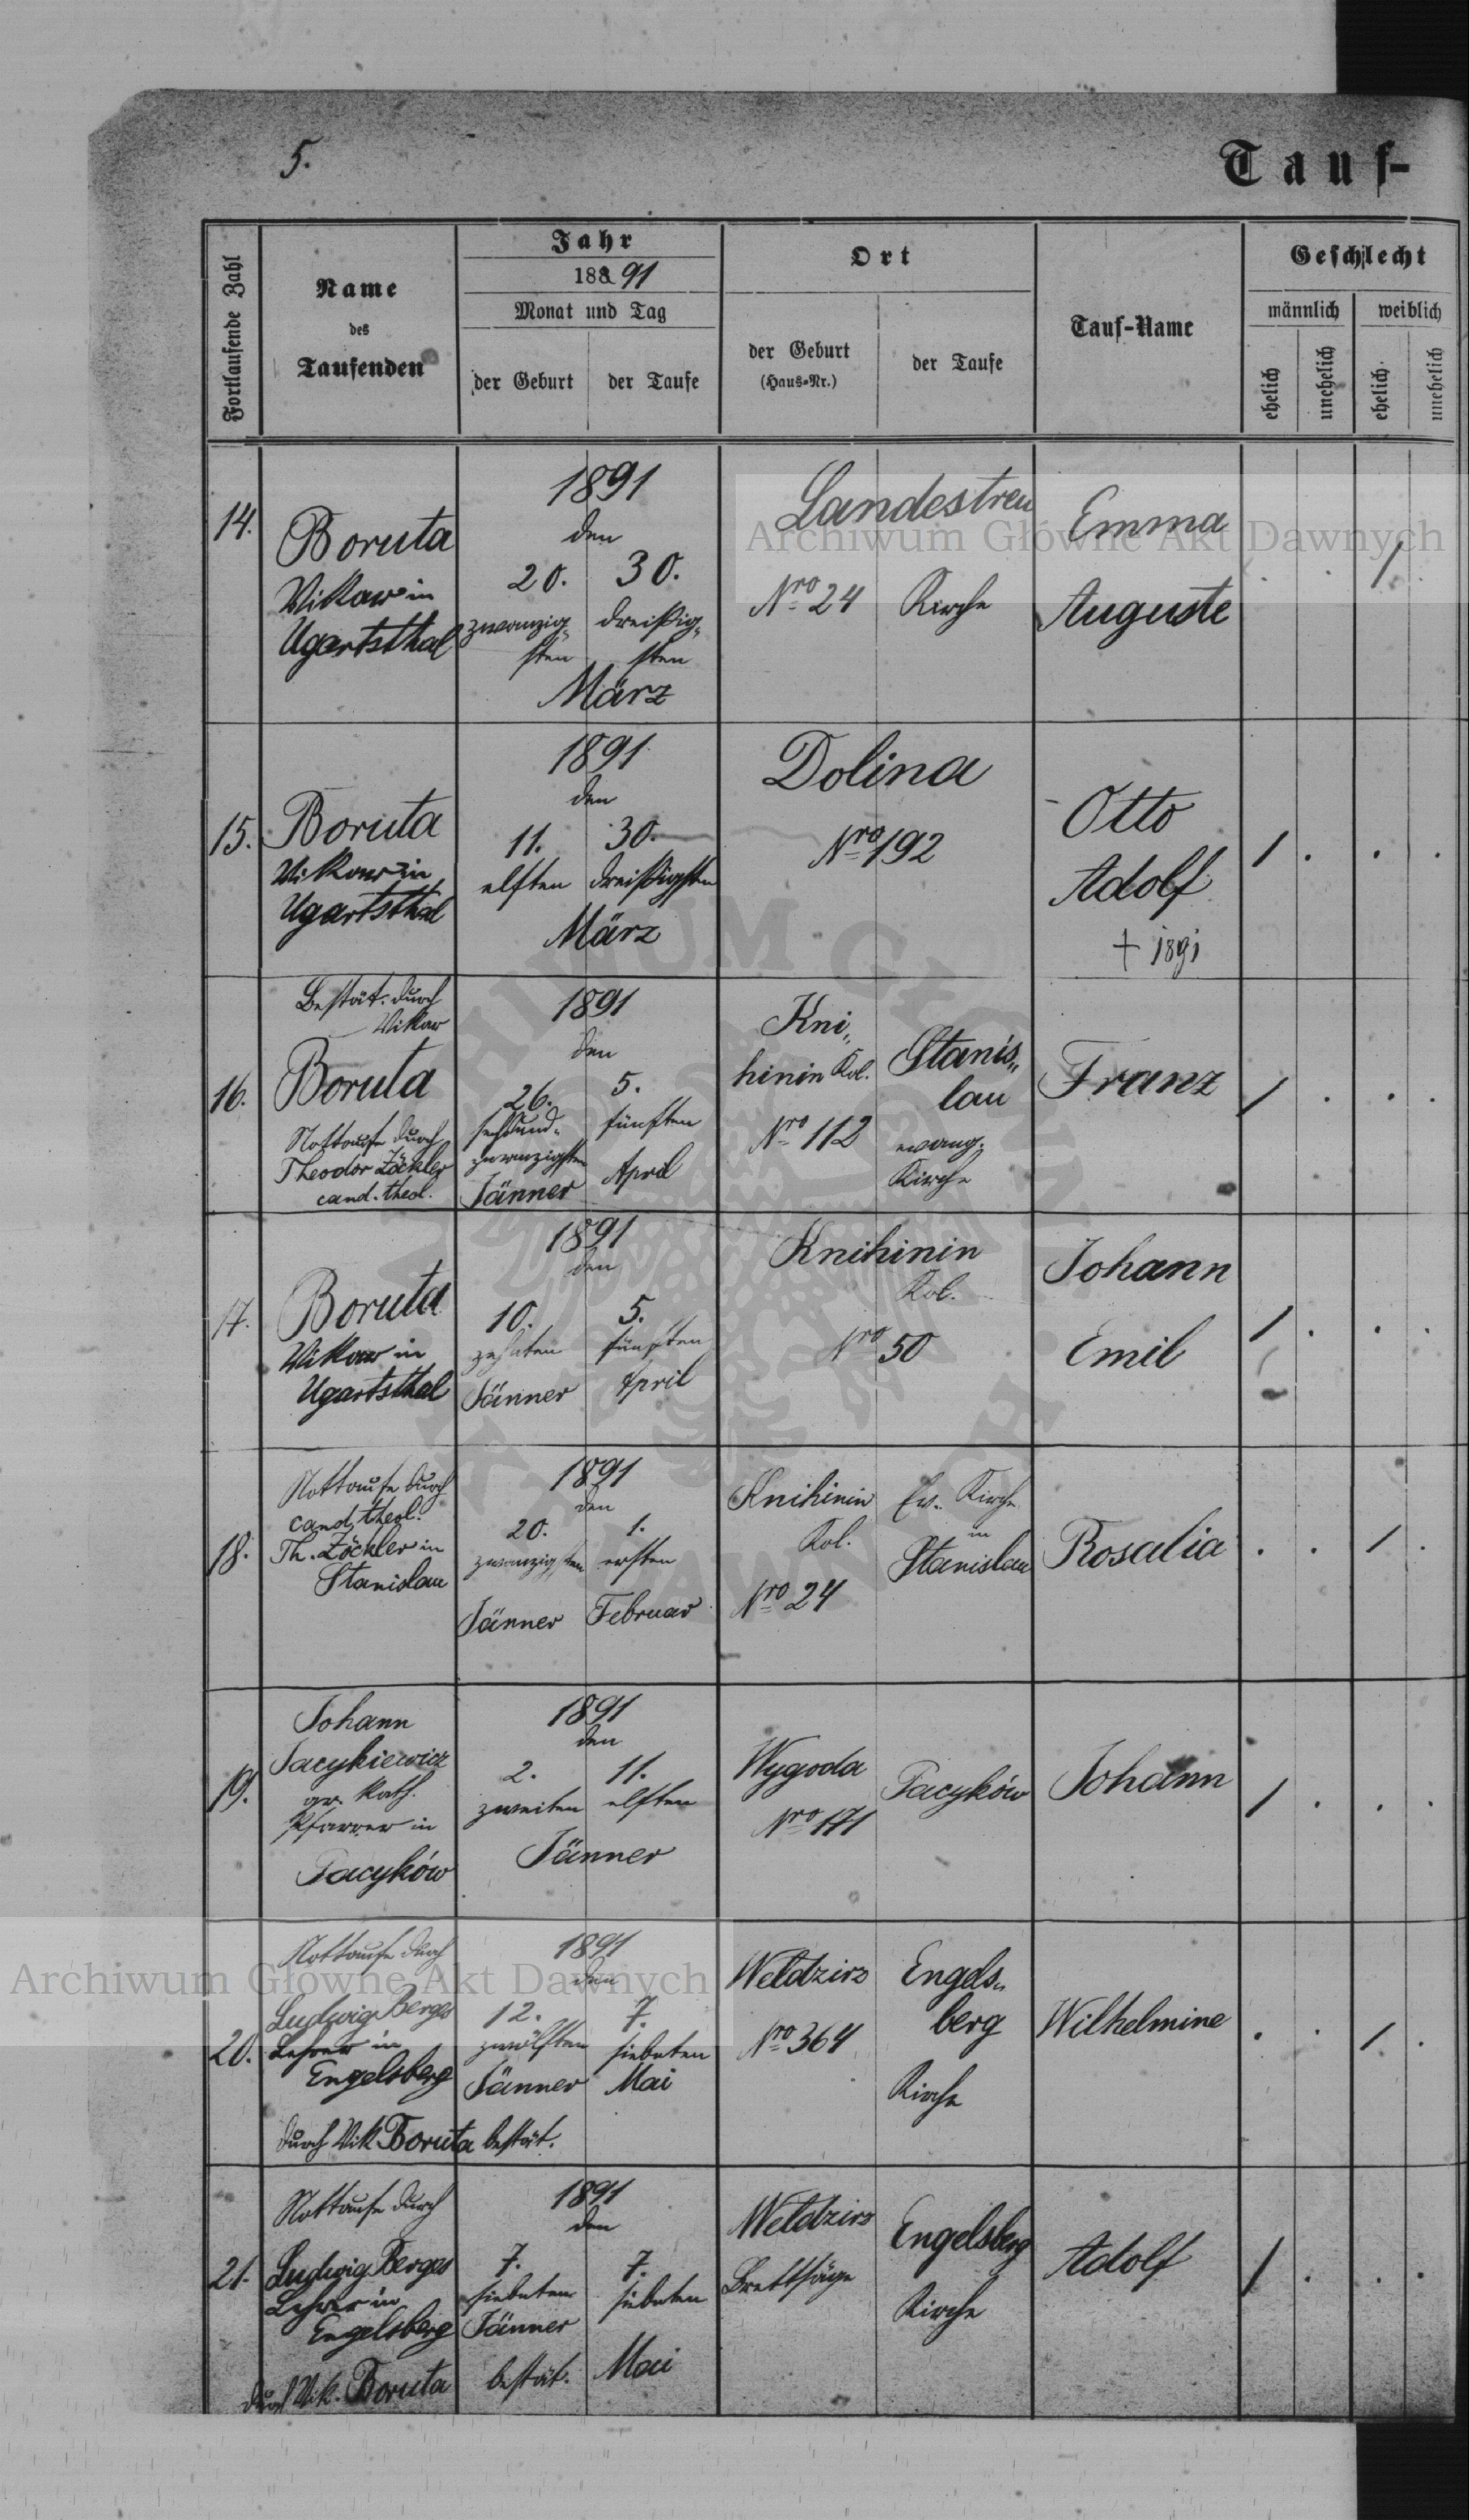 5.
Tauf-
Fortlaufende Zahl
Name
des
Taufenden
Jahr
188 91
Monat und Tag
der Geburt
der Taufe
Ort
der Geburt
(Haus-Nr.)
der Taufe
Tauf-Name
Geschlecht
männlich
weiblich
ehelich
unehelich
ehelich
unehelich
14.
Boruta
Vikar in
Ugartsthal
1891
den
20. 30.
zwanzig- dreißig-
sten sten
März
Landestreu
Nro 24 Kirche
Emma
Auguste
1
15.
Boruta
Vikar in
Ugartsthal
1891
den
11. 30.
elften dreißigsten
März
Dolina
Nro 192
Otto
Adolf
+ 1891
1 . . .
16.
Bestät. durch
Vikar
Boruta
Nottaufe durch
Theodor Zöckler
cand. theol.
1891
den
26. 5.
sechsund- fünften
zwanzigsten
Jänner April
Kni-
hinin Kol.
Nro 112
Stanis-
lau
evang.
Kirche
Franz
1 . . .
17.
Boruta
Vikar in
Ugartsthal
1891
den
10. 5.
zehnten fünften
Jänner April
Knihinin
Kol.
Nro 50
Johann
Emil
1 . . .
18.
Nottaufe durch
cand. theol.
Th. Zöckler in
Stanislau
1891
den
20. 1.
zwanzigsten ersten
Jänner Februar
Knihinin
Kol.
Nro 24
Ev. Kirche
in
Stanislau
Rosalia
. . 1 .
19.
Johann
Jacykiewicz
gr. kath.
Pfarrer in
Pacyków
1891
den
2. 11.
zweiten elften
Jänner
Wygoda
Nro 171
Pacyków
Johann
1 . . .
20.
Nottaufe durch
Ludwig Berges
Lehrer in
Engelsberg
durch Vik. Boruta bestät.
1891
den
12. 7.
zwölften siebenten
Jänner Mai
Weldzirz
Nro 364
Engels-
berg
Kirche
Wilhelmine
. . 1 .
21.
Nottaufe durch
Ludwig Berges
Lehrer in
Engelsberg
durch Vik. Boruta bestät.
1891
den
7. 7.
siebenten siebenten
Jänner
Mai
Weldzirz
Brettsäge
Engelsberg
Kirche
Adolf
1 . . .
Archiwum Główne Akt Dawnych
Archiwum Główne Akt Dawnych
ARCHIWUM GŁÓWNE AKT DAWNYCH